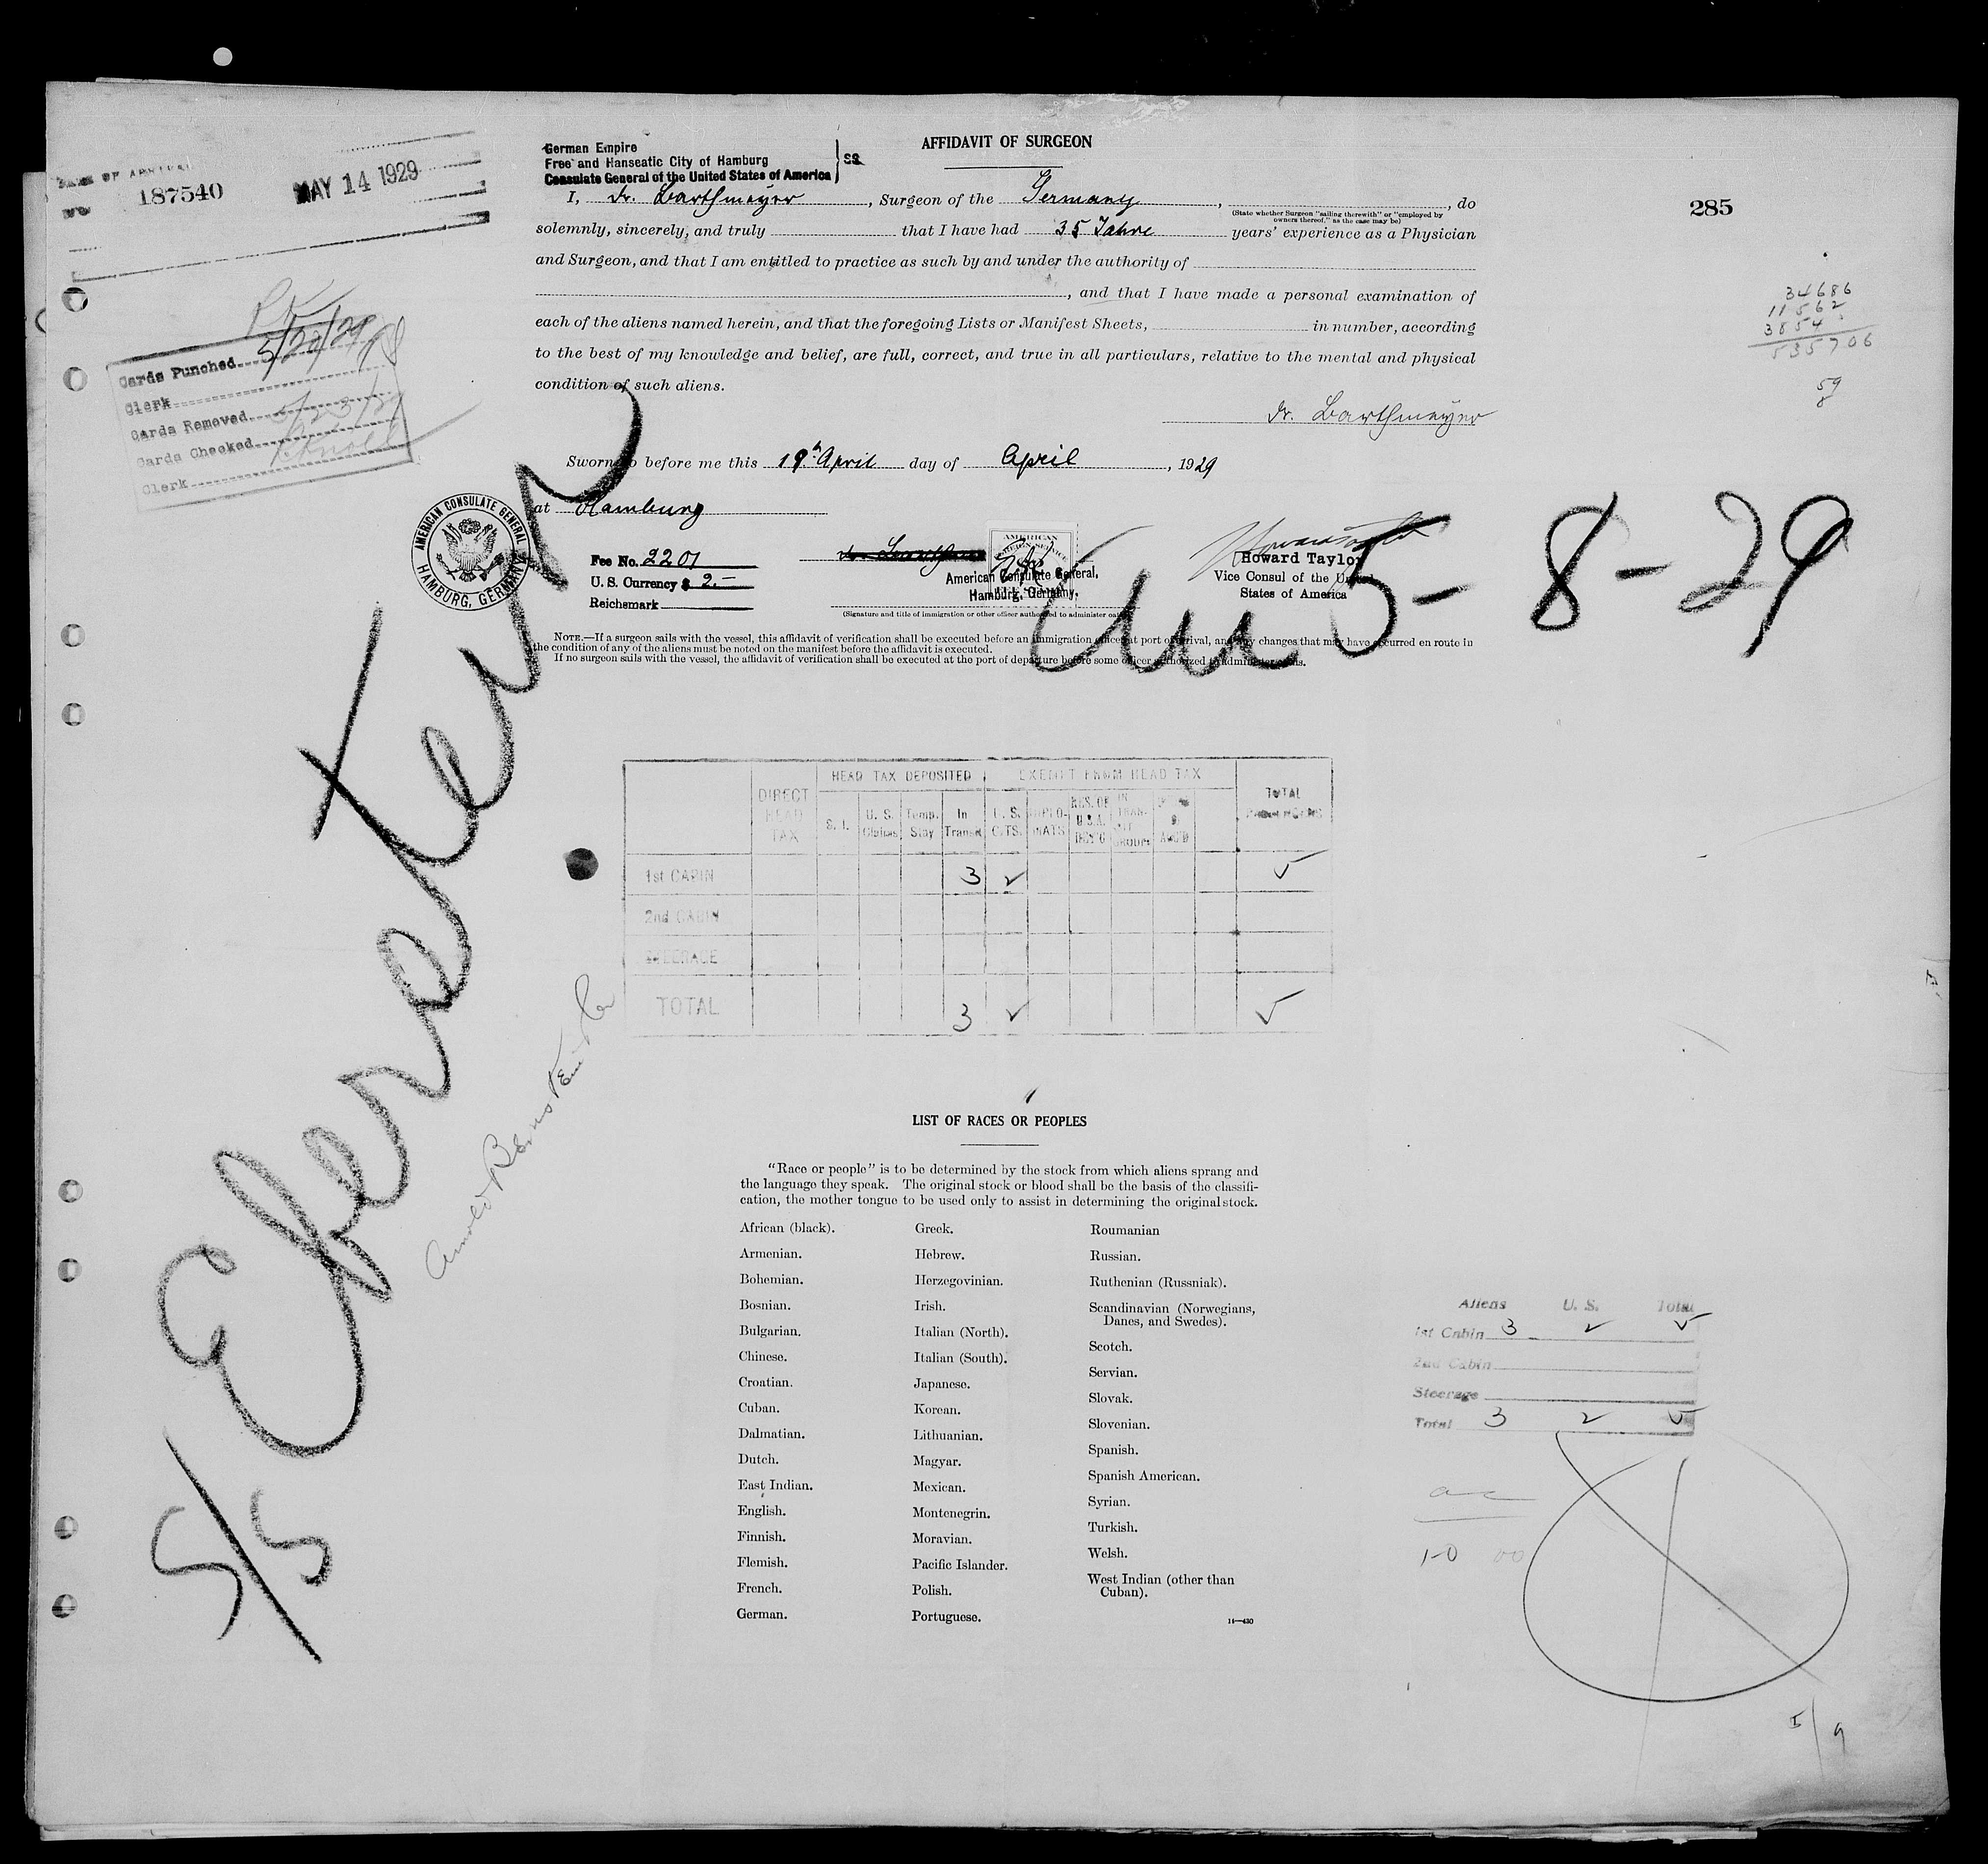 187540
MAY 14 1929
Cards Punched 5/20/29
Clerk
Cards Removed
Cards Checked
Clerk
AFFIDAVIT OF SURGEON
German Empire
Free and Hanseatic City of Hamburg
Consulate General of the United States of America
SS
285
I, Dr. Barthmeyer, Surgeon of the Germany, , do
(State whether Surgeon "sailing therewith" or "employed by
owners thereof," as the case may be)
solemnly, sincerely, and truly that I have had 35 Jahre years' experience as a Physician
and Surgeon, and that I am entitled to practice as such by and under the authority of
, and that I have made a personal examination of
each of the aliens named herein, and that the foregoing Lists or Manifest Sheets, in number, according
to the best of my knowledge and belief, are full, correct, and true in all particulars, relative to the mental and physical
condition of such aliens.
Dr. Barthmeyer
34686
11562
3854
535706
59
8
Sworn to before me this 19th April day of April, 1929
at Hamburg
AMERICAN CONSULATE GENERAL
HAMBURG, GERMANY
Fee No. 2201
U. S. Currency $ 2.-
Reichsmark
American Consulate General,
Hamburg, Germany.
(Signature and title of immigration or other officer authorized to administer oaths)
Howard Taylor
Vice Consul of the United
States of America
5-8-29
NOTE.—If a surgeon sails with the vessel, this affidavit of verification shall be executed before an immigration officer at port of arrival, and any changes that may have occurred en route in
the condition of any of the aliens must be noted on the manifest before the affidavit is executed.
If no surgeon sails with the vessel, the affidavit of verification shall be executed at the port of departure before some officer authorized to administer oaths.
S/S
Arnold Bernstein
HEAD TAX DEPOSITED EXEMPT FROM HEAD TAX
DIRECT HEAD TAX S. I. U. S. Claims Temp. Stay In Transit U. S. CITS. DIPLO-MATS RES. OF U.S.A. IN TRAN-SIT GROUPS TOTAL
1st CABIN 3 2 5
2nd CABIN
STEERAGE
TOTAL 3 2 5
LIST OF RACES OR PEOPLES
"Race or people" is to be determined by the stock from which aliens sprang and
the language they speak. The original stock or blood shall be the basis of the classifi-
cation, the mother tongue to be used only to assist in determining the original stock.
African (black).
Armenian.
Bohemian.
Bosnian.
Bulgarian.
Chinese.
Croatian.
Cuban.
Dalmatian.
Dutch.
East Indian.
English.
Finnish.
Flemish.
French.
German.
Greek.
Hebrew.
Herzegovinian.
Irish.
Italian (North).
Italian (South).
Japanese.
Korean.
Lithuanian.
Magyar.
Mexican.
Montenegrin.
Moravian.
Pacific Islander.
Polish.
Portuguese.
Roumanian
Russian.
Ruthenian (Russniak).
Scandinavian (Norwegians,
Danes, and Swedes).
Scotch.
Servian.
Slovak.
Slovenian.
Spanish.
Spanish American.
Syrian.
Turkish.
Welsh.
West Indian (other than
Cuban).
14—430
Aliens U. S. Total
1st Cabin 3 2 5
2nd Cabin
Steerage
Total 3 2 5
5/9